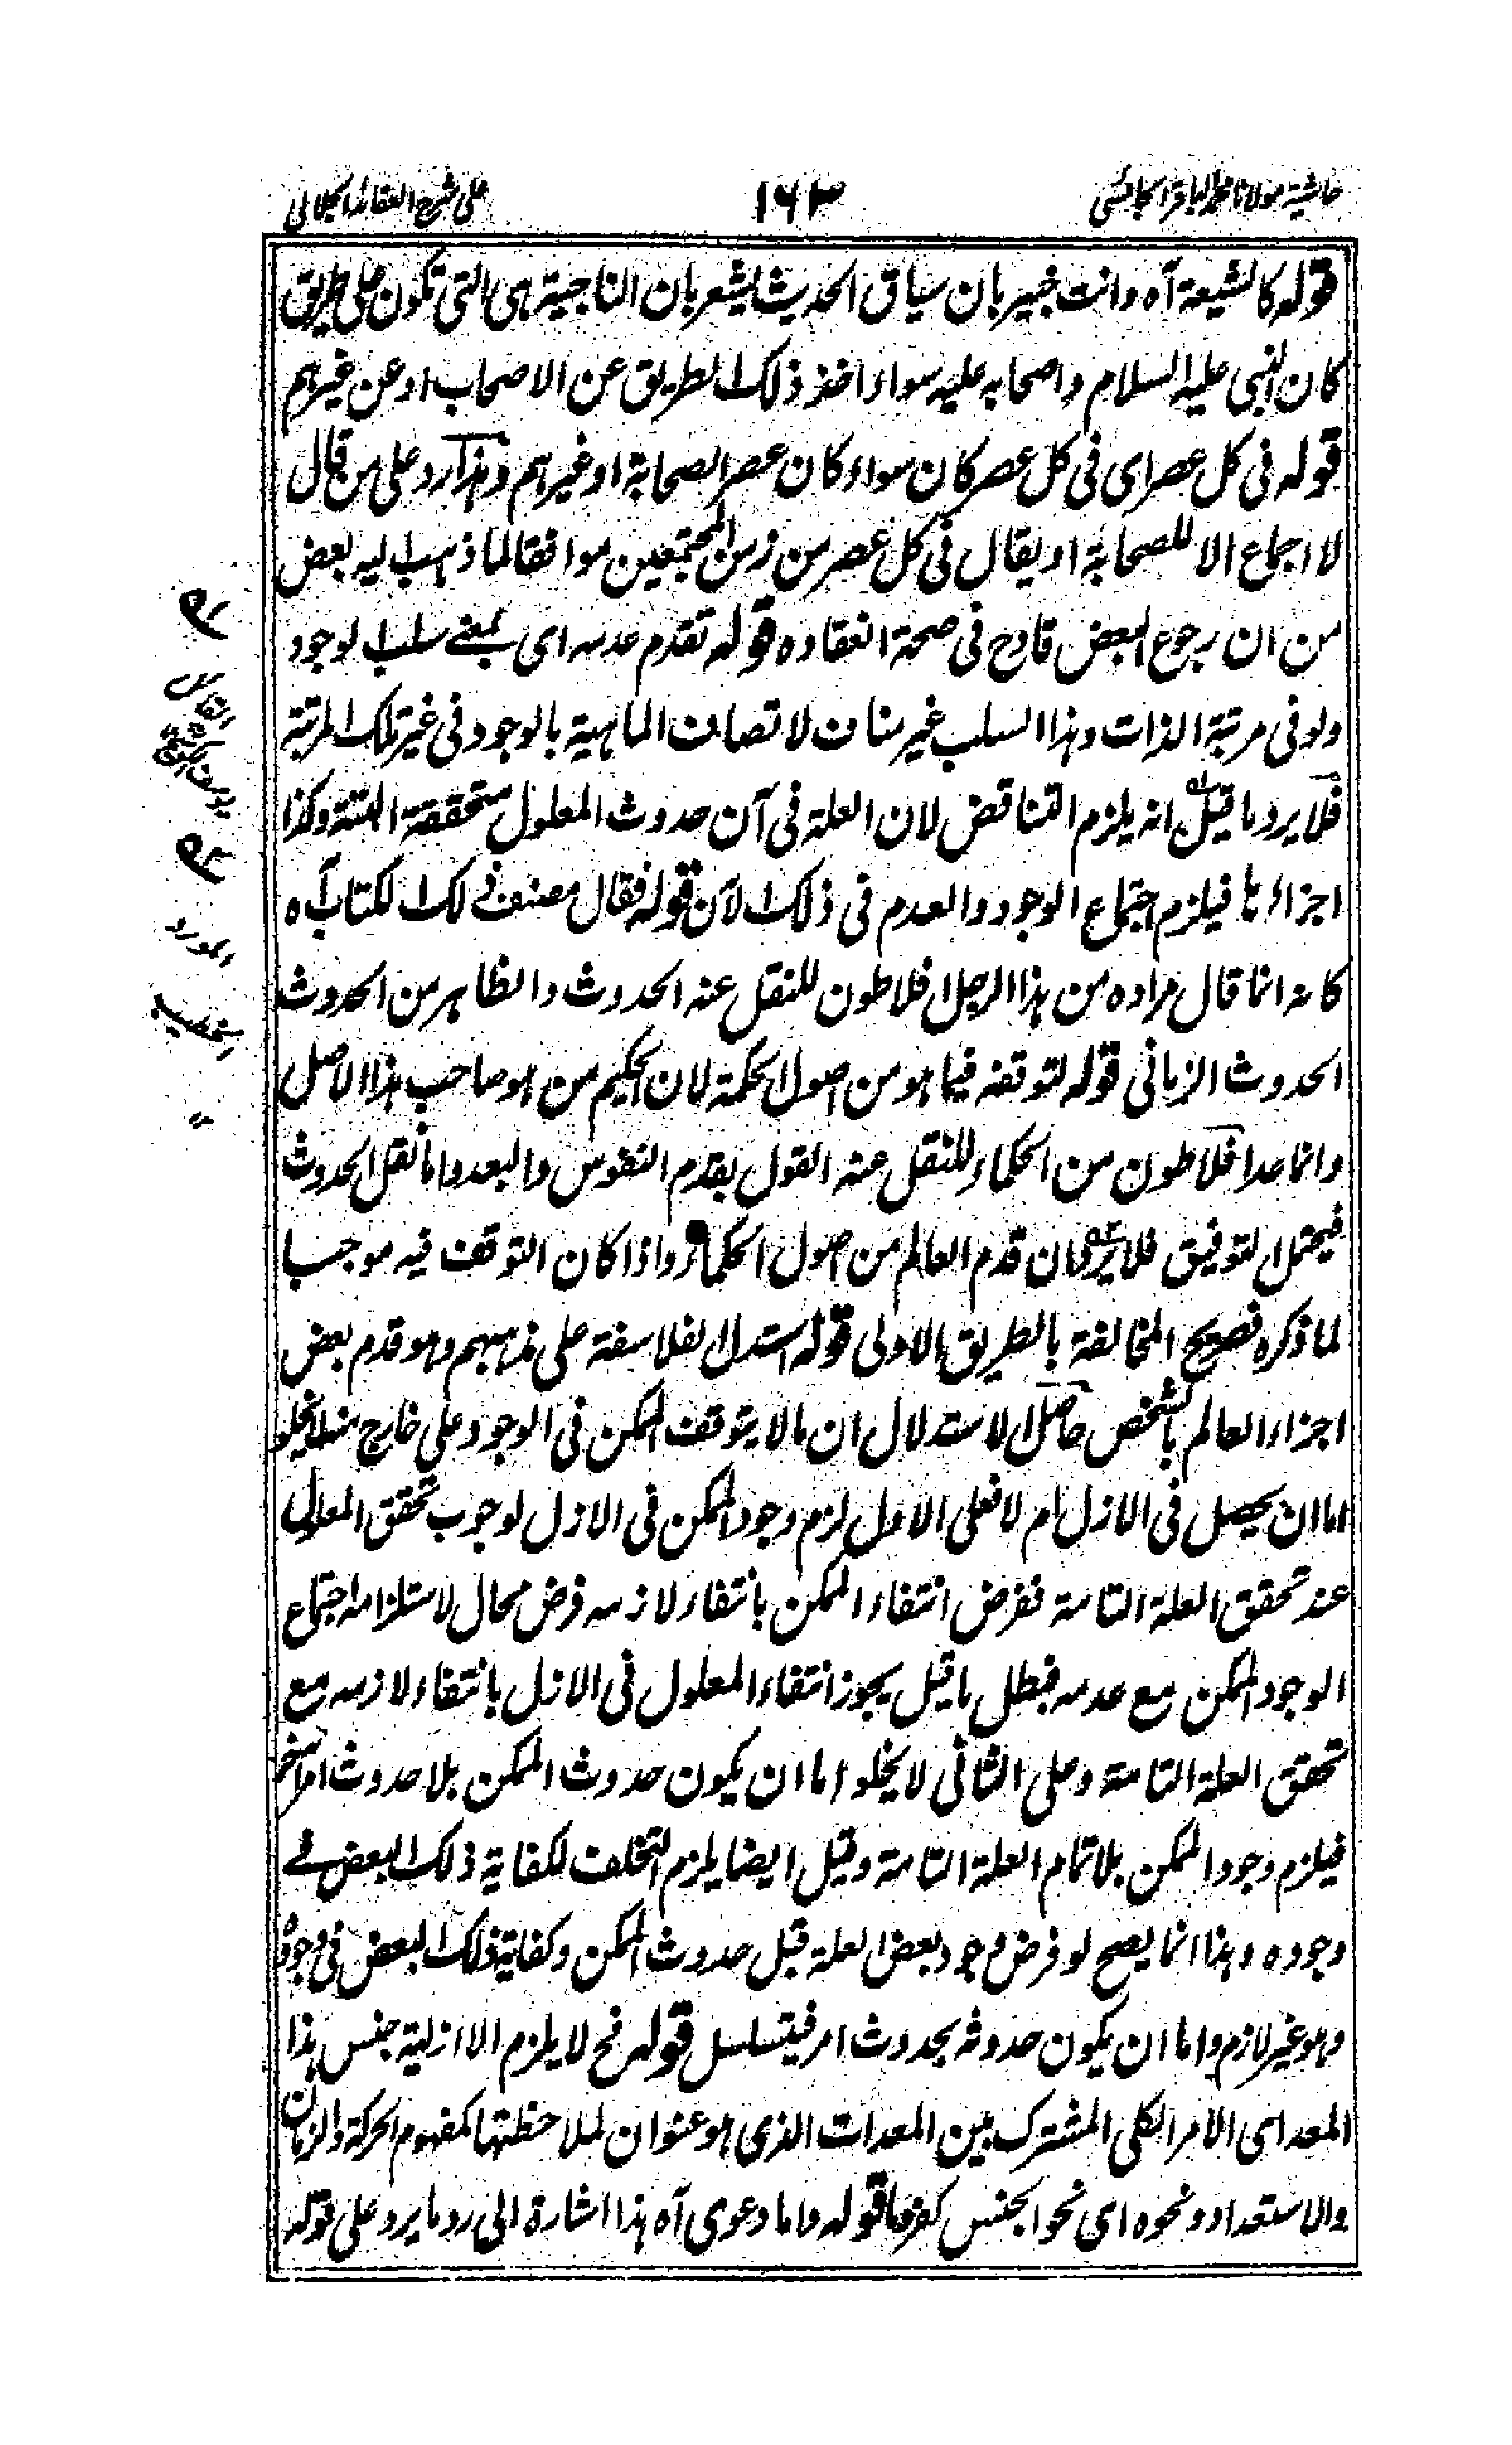 حاشية مولانا محمد الباقر
١٦٣
على شرح العقائد الجلالى
قوله كالشيعة آه وانت خبير بان سياق الحديث يشعر بان الناجية هى التى تكون على طريق
كان النبى عليه السلام واصحابه عليه سواء اخذ ذلك الطريق عن الاصحاب او عن غيرهم
قوله فى كل عصر اى فى كل عصر كان سواء كان عصر الصحابة او غيرهم وهذا رد على من قال
لا اجماع الا للصحابة او يقال فى كل عصر من زمن المجتمعين موافقا لما ذهب اليه بعض
من ان رجوع البعض قادح فى صحة انعقاده قوله تقدم عدمه اى بمعنے سلب الوجود
ولو فى مرتبة الذات وهذا السلب غير مناف لاتصاف الماهية بالوجود فى غير تلك المرتبة
فلا يرد ما قيل انه يلزم التناقض لان العلة فى آن حدوث المعلول متحققة البتة وكذا
اجزاءها فيلزم اجتماع الوجود والعدم فى ذلك الآن قوله فقال مصنف ذلك الكتاب آه
كانه انما قال مراده من هذا الرجل افلاطون للنقل عنه الحدوث والظاهر من الحدوث
الحدوث الزمانى قوله لتوقفه فيما هو من اصول الحكمة لان الحكيم من هو صاحب هذا الاصل
وانما عدا فلاطون من الحكماء للنقل عنه القول بقدم النفوس والبعد واما نقل الحدوث
فيحتمل التوفيق فلا يرد ان قدم العالم من اصول الحكماء واذا كان التوقف فيه موجبا
لما ذكره فصريح المخالفة بالطريق الاولى قوله استدل الفلاسفة على مذهبهم وهو قدم بعض
اجزاء العالم بالشخص حاصل الاستدلال ان ما لا يتوقف الممكن فى الوجود على خارج منه لا يخلو
اما ان يحصل فى الازل ام لا فعلى الاول لزم وجود الممكن فى الازل لوجوب تحقق المعلول
عند تحقق العلة التامة ففرض انتفاء الممكن بانتفاء لازمه فرض محال لاستلزامه اجتماع
الوجود الممكن مع عدمه فبطل ما قيل يجوز انتفاء المعلول فى الازل بانتفاء لازمه مع
تحقق العلة التامة وعلى الثانى لا يخلو اما ان يكون حدوث الممكن بلا حدوث امر آخر
فيلزم وجود الممكن بلا تمام العلة التامة وقيل ايضا يلزم التخلف لكفاية ذلك البعض فے
وجوده وهذا انما يصح لو فرض وجود بعض العلة قبل حدوث الممكن وكفاية ذلك البعض فى وجوده
وهو غير لازم واما ان يكون حدوثه بحدوث امر فيتسلسل قوله نح لا يلزم الا ازلية جنس هذا
المعد اى الامر الكلى المشترك بين المعدات الذى هو عنوان لملاحظتها كمفهوم الحركة والزمان
والاستعداد ونحوه اى نحو الجنس كنوعها قوله واما دعوى آه هذا اشارة الى رد ما يرد على قوله
القائل
المورد